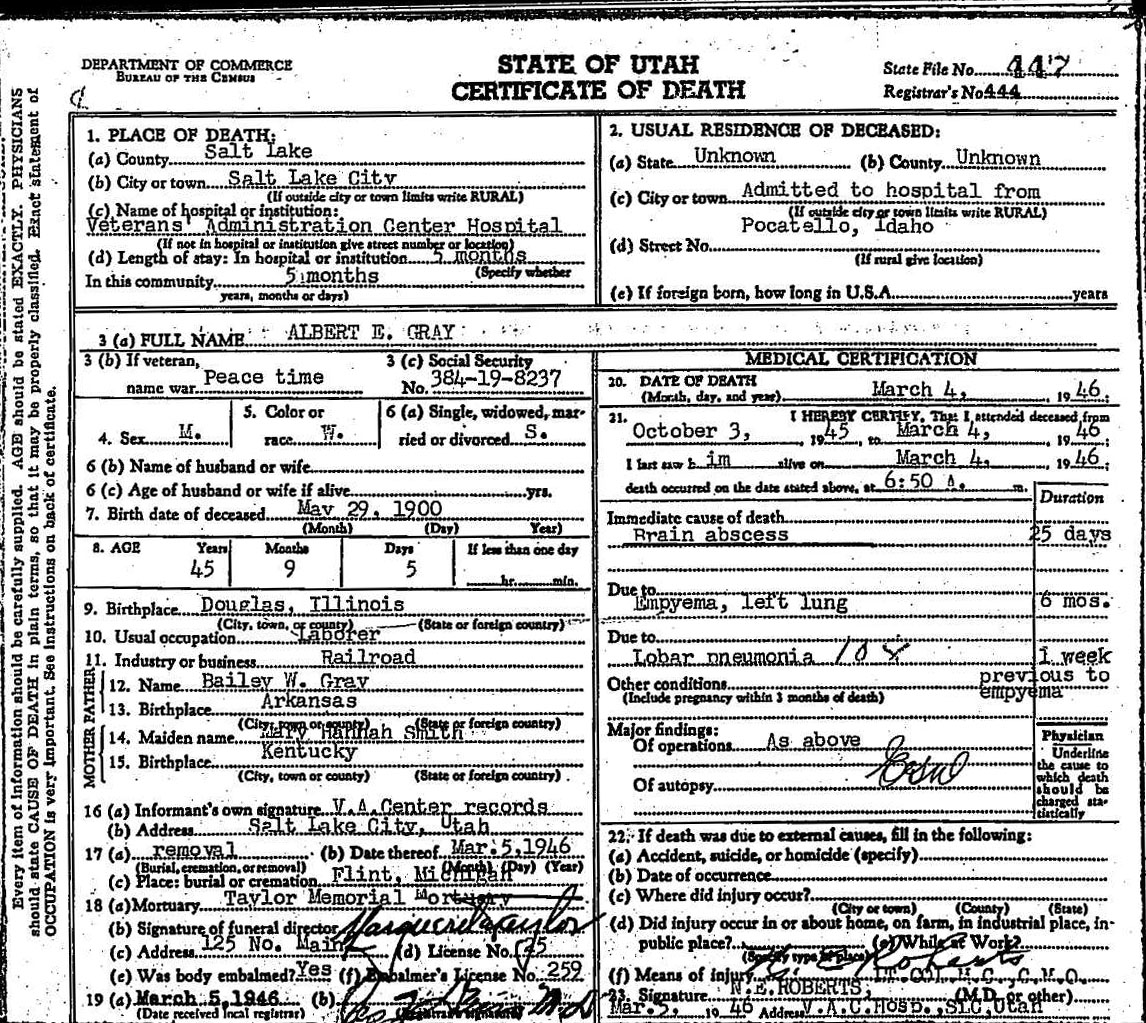 DEPARTMENT OF COMMERCE
BUREAU OF THE CENSUS
STATE OF UTAH
CERTIFICATE OF DEATH
State File No. 447
Registrar's No 444
Every item of information should be carefully supplied. AGE should be stated EXACTLY. PHYSICIANS
should state CAUSE OF DEATH in plain terms, so that it may be properly classified. Exact statement of
OCCUPATION is very important. See instructions on back of certificate.
1. PLACE OF DEATH:
(a) County Salt Lake
(b) City or town Salt Lake City
(If outside city or town limits write RURAL)
(c) Name of hospital or institution:
Veterans' Administration Center Hospital
(If not in hospital or institution give street number or location)
(d) Length of stay: In hospital or institution 5 months
(Specify whether
In this community 5 months
years, months or days)
2. USUAL RESIDENCE OF DECEASED:
(a) State Unknown (b) County Unknown
(c) City or town Admitted to hospital from
(If outside city or town limits write RURAL)
Pocatello, Idaho
(d) Street No
(If rural give location)
(e) If foreign born, how long in U.S.A. years
3 (a) FULL NAME ALBERT E. GRAY
3 (b) If veteran,
name war Peace time
3 (c) Social Security
No. 384-19-8237
4. Sex M.
5. Color or
race W.
6 (a) Single, widowed, mar-
ried or divorced S.
6 (b) Name of husband or wife
6 (c) Age of husband or wife if alive yrs.
7. Birth date of deceased May 29, 1900
(Month) (Day) Year)
8. AGE Years Months Days If less than one day
45 9 5 hr. min.
9. Birthplace Douglas, Illinois
(City, town, or county) (State or foreign country)
10. Usual occupation Laborer
11. Industry or business Railroad
FATHER
12. Name Bailey W. Gray
13. Birthplace Arkansas
(City, town or county) (State or foreign country)
MOTHER
14. Maiden name Mary Hannah Smith
15. Birthplace Kentucky
(City, town or county) (State or foreign country)
16 (a) Informant's own signature V.A.Center records
(b) Address Salt Lake City, Utah
17 (a) removal (b) Date thereof Mar.5,1946
(Burial, cremation, or removal) (Month) (Day) (Year)
(c) Place: burial or cremation Flint, Michigan
18 (a) Mortuary Taylor Memorial Mortuary
(b) Signature of funeral director
(c) Address 125 No. Main (d) License No. 75
(e) Was body embalmed? Yes (f) Embalmer's License No. 259
19 (a) March 5,1946 (b)
(Date received local registrar) (Registrar's signature)
MEDICAL CERTIFICATION
20. DATE OF DEATH
(Month, day, and year) March 4, 19 46.
21. I HEREBY CERTIFY, That I attended deceased from
October 3, 1945 to March 4, 19 46
I last saw h im alive on March 4, 19 46;
death occurred on the date stated above, at 6:50 A. m.
Duration
Immediate cause of death
Brain abscess 25 days
Due to
Empyema, left lung 6 mos.
Due to
Lobar pneumonia 108 1 week
previous to
empyema
Other conditions
(Include pregnancy within 3 months of death)
Major findings:
Of operations As above
Of autopsy
Physician
Underline
the cause to
which death
should be
charged sta-
tistically
22. If death was due to external causes, fill in the following:
(a) Accident, suicide, or homicide (specify)
(b) Date of occurrence
(c) Where did injury occur?
(City or town) (County) (State)
(d) Did injury occur in or about home, on farm, in industrial place, in-
public place? (e) While at Work?
(Specify type of place)
(f) Means of injury LT.COL.M.C., C.M.O.
N.E.ROBERTS,
23. Signature (M.D. or other)
Mar.5, 19 46 Address V.A.C.Hosp.,SLC,Utah